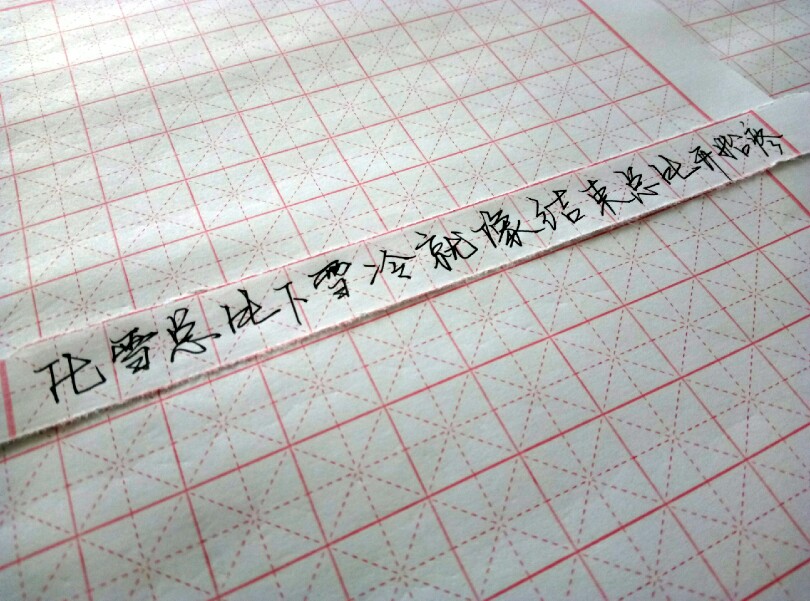 化雪总比下雪冷就像结束总比开始